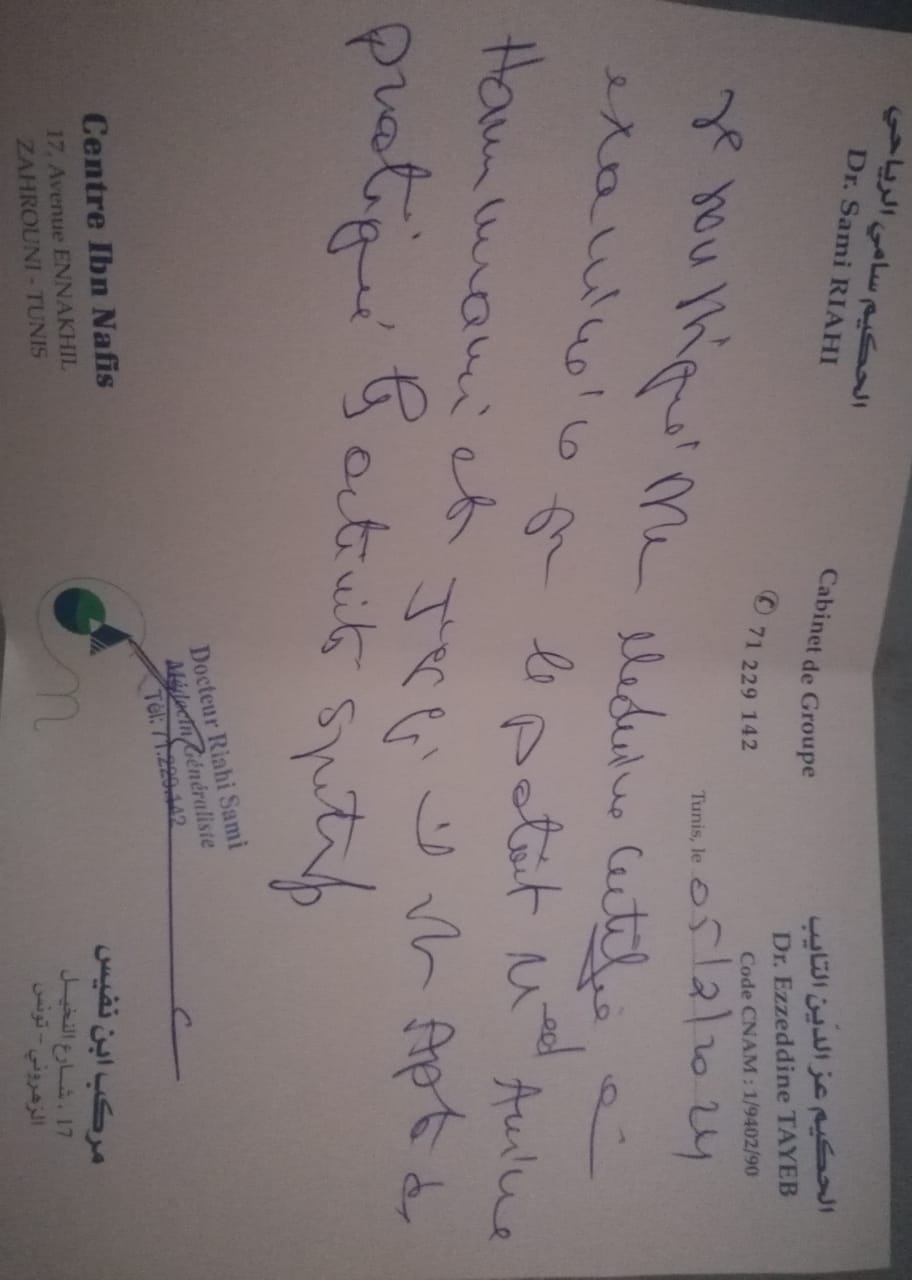 الحكيم سامي الرياحي
Dr. Sami RIAHI
Cabinet de Groupe
✆ 71 229 142
الحكيم عز الدين التايب
Dr. Ezzeddine TAYEB
Code CNAM : 1/9402/90
Tunis, le 05/2/2024
Je soussigné Me Medecine Certifie a
examiné le patient Med Amine
Hammami et il est Apte de
pratiquer activité sportif
Docteur Riahi Sami
Médecin Généraliste
Tél: 71.229.142
Centre Ibn Nafis
17, Avenue ENNAKHIL
ZAHROUNI - TUNIS
مركب ابن نفيس
17، شارع النخيل
الزهروني - تونس